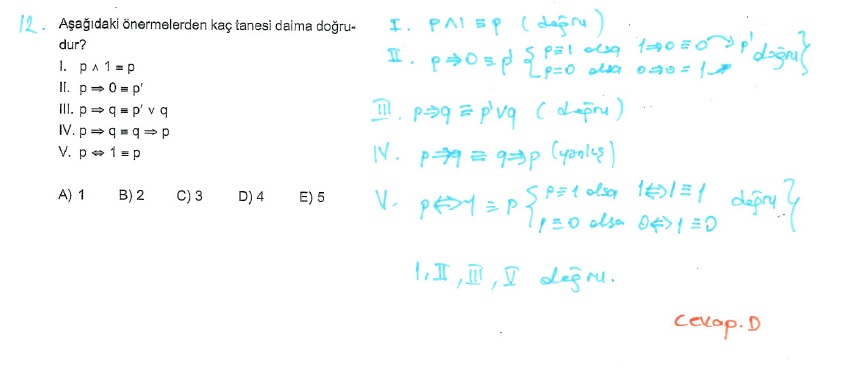 12. Aşağıdaki önermelerden kaç tanesi daima doğru-
dur?
I. p ∧ 1 ≡ p
II. p ⇒ 0 ≡ p'
III. p ⇒ q ≡ p' v q
IV. p ⇒ q ≡ q ⇒ p
V. p ⇔ 1 ≡ p
A) 1 B) 2 C) 3 D) 4 E) 5
I. p∧1 ≡ p (doğru)
II. p⇒0 ≡ p' { p≡1 olsa 1⇒0≡0 → p' doğru }
p=0 olsa 0⇒0=1
III. p⇒q ≡ p'vq (doğru)
IV. p⇒q ≡ q⇒p (yanlış)
V. p⇔1 ≡ p { p≡1 olsa 1⇔1≡1 doğru }
p≡0 olsa 0⇔1≡0
I, II, III, V doğru.
Cevap. D